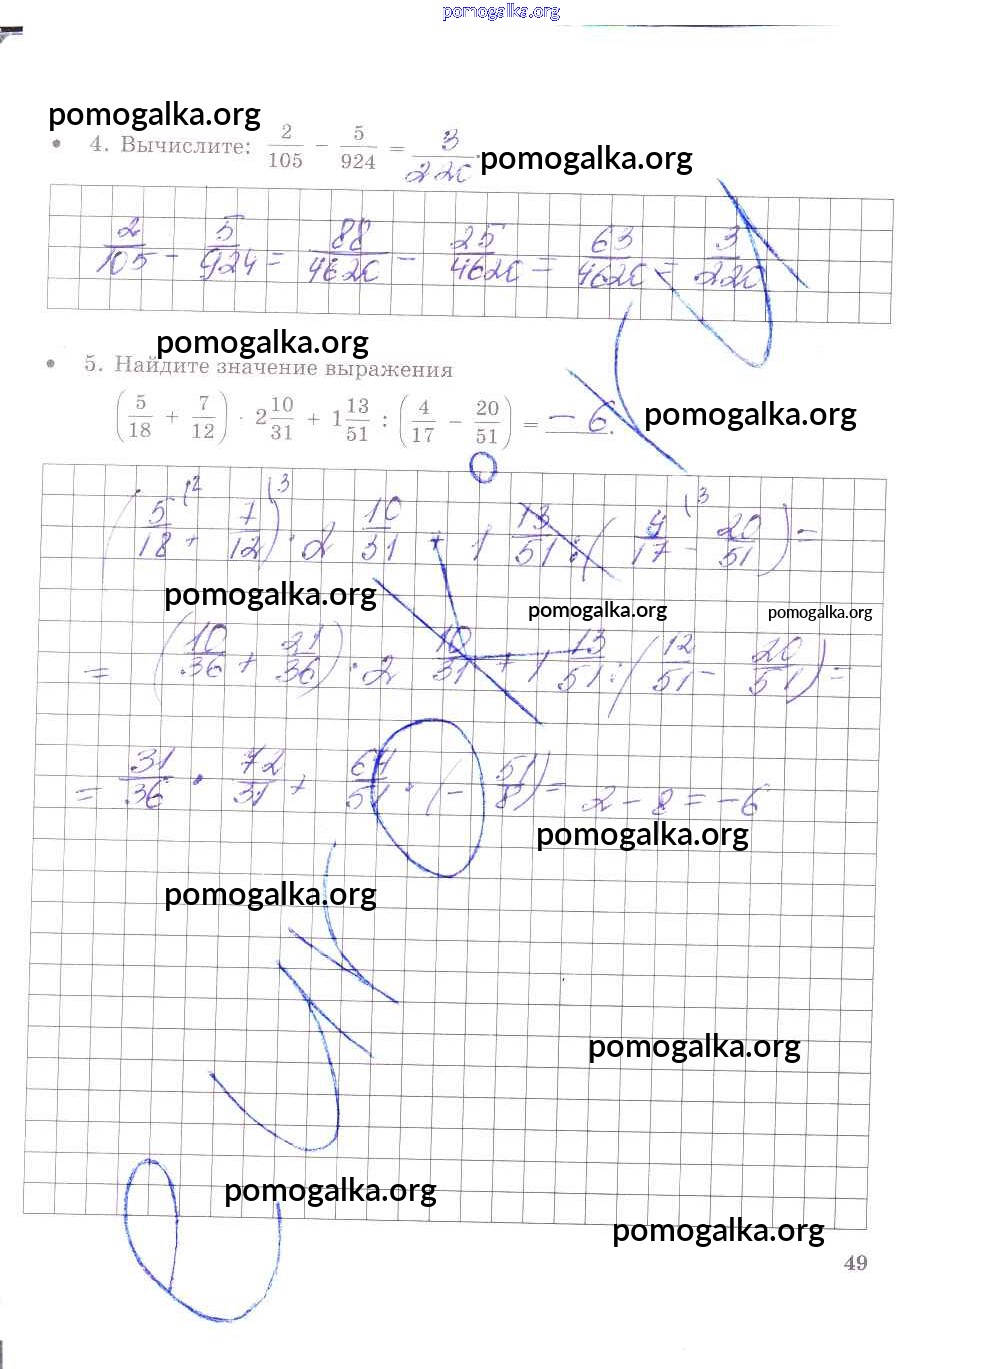 pomogalka.org
pomogalka.org
• 4. Вычислите: 2/105 − 5/924 = 3/220.
pomogalka.org
2/105 − 5/924 = 88/4620 − 25/4620 = 63/4620 = 3/220
pomogalka.org
• 5. Найдите значение выражения
(5/18 + 7/12) · 2 10/31 + 1 13/51 : (4/17 − 20/51) = −6.
pomogalka.org
(5/18 ⁽² + 7/12 ⁽³) · 2 10/31 + 1 13/51 : (4/17 ⁽³ − 20/51) =
pomogalka.org
pomogalka.org
pomogalka.org
= (10/36 + 21/36) · 2 10/31 + 1 13/51 : (12/51 − 20/51) =
= 31/36 · 72/31 + 64/51 · (− 51/8) = 2 − 8 = −6
pomogalka.org
pomogalka.org
pomogalka.org
pomogalka.org
pomogalka.org
49